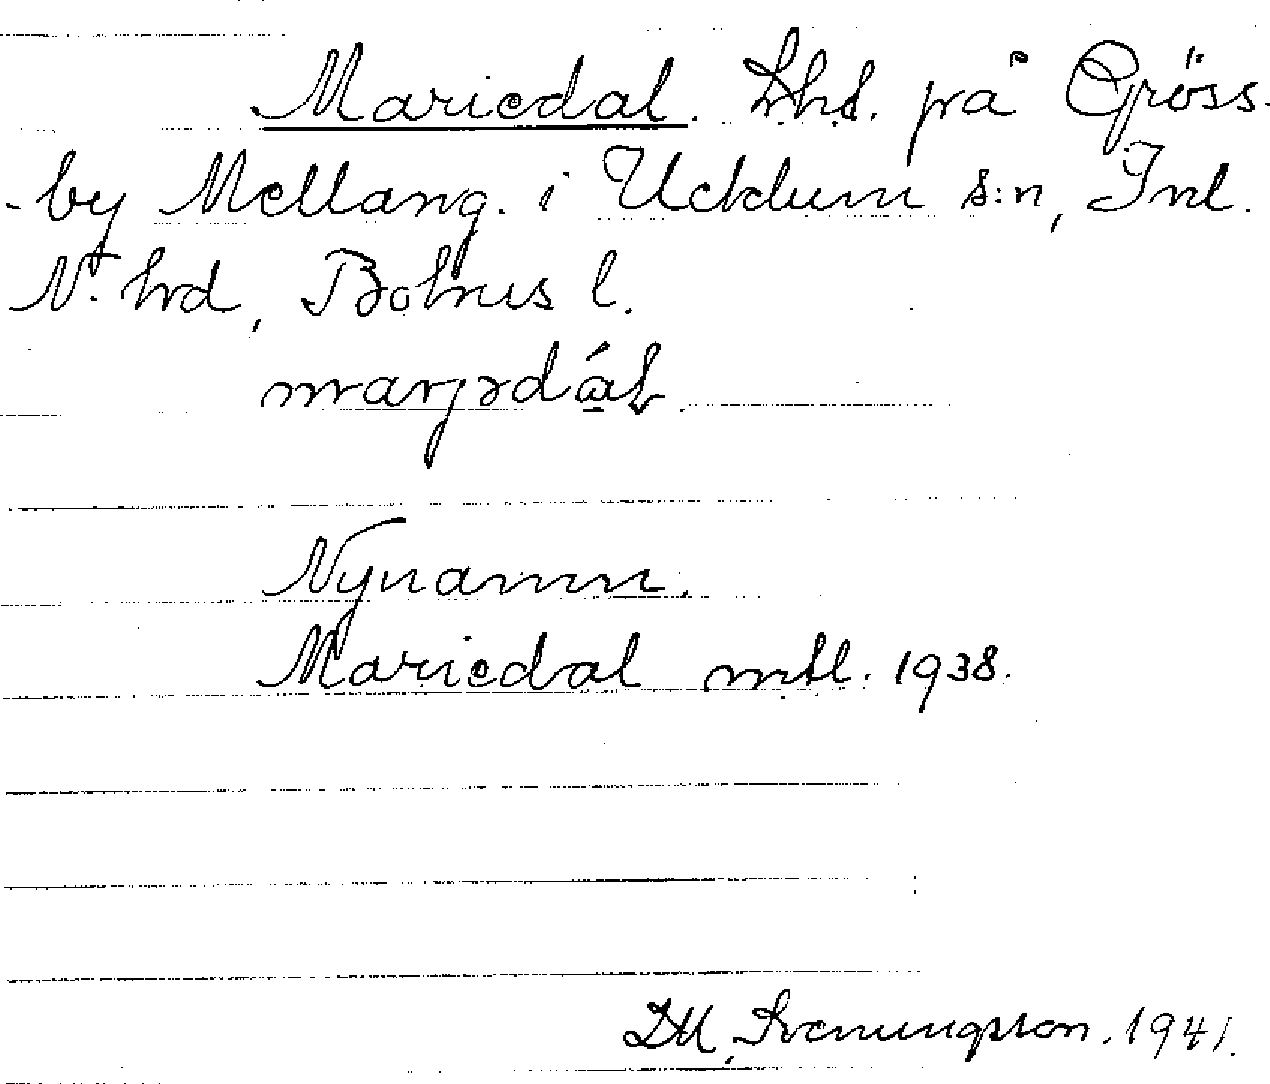 Mariedal. Lhs. på Gröss-
-by Mellang. i Ucklum s:n, Inl.
N. hrd, Bohus l.
marjədál
Nynamn.
Mariedal mtl. 1938.
Svenungsson. 1941.